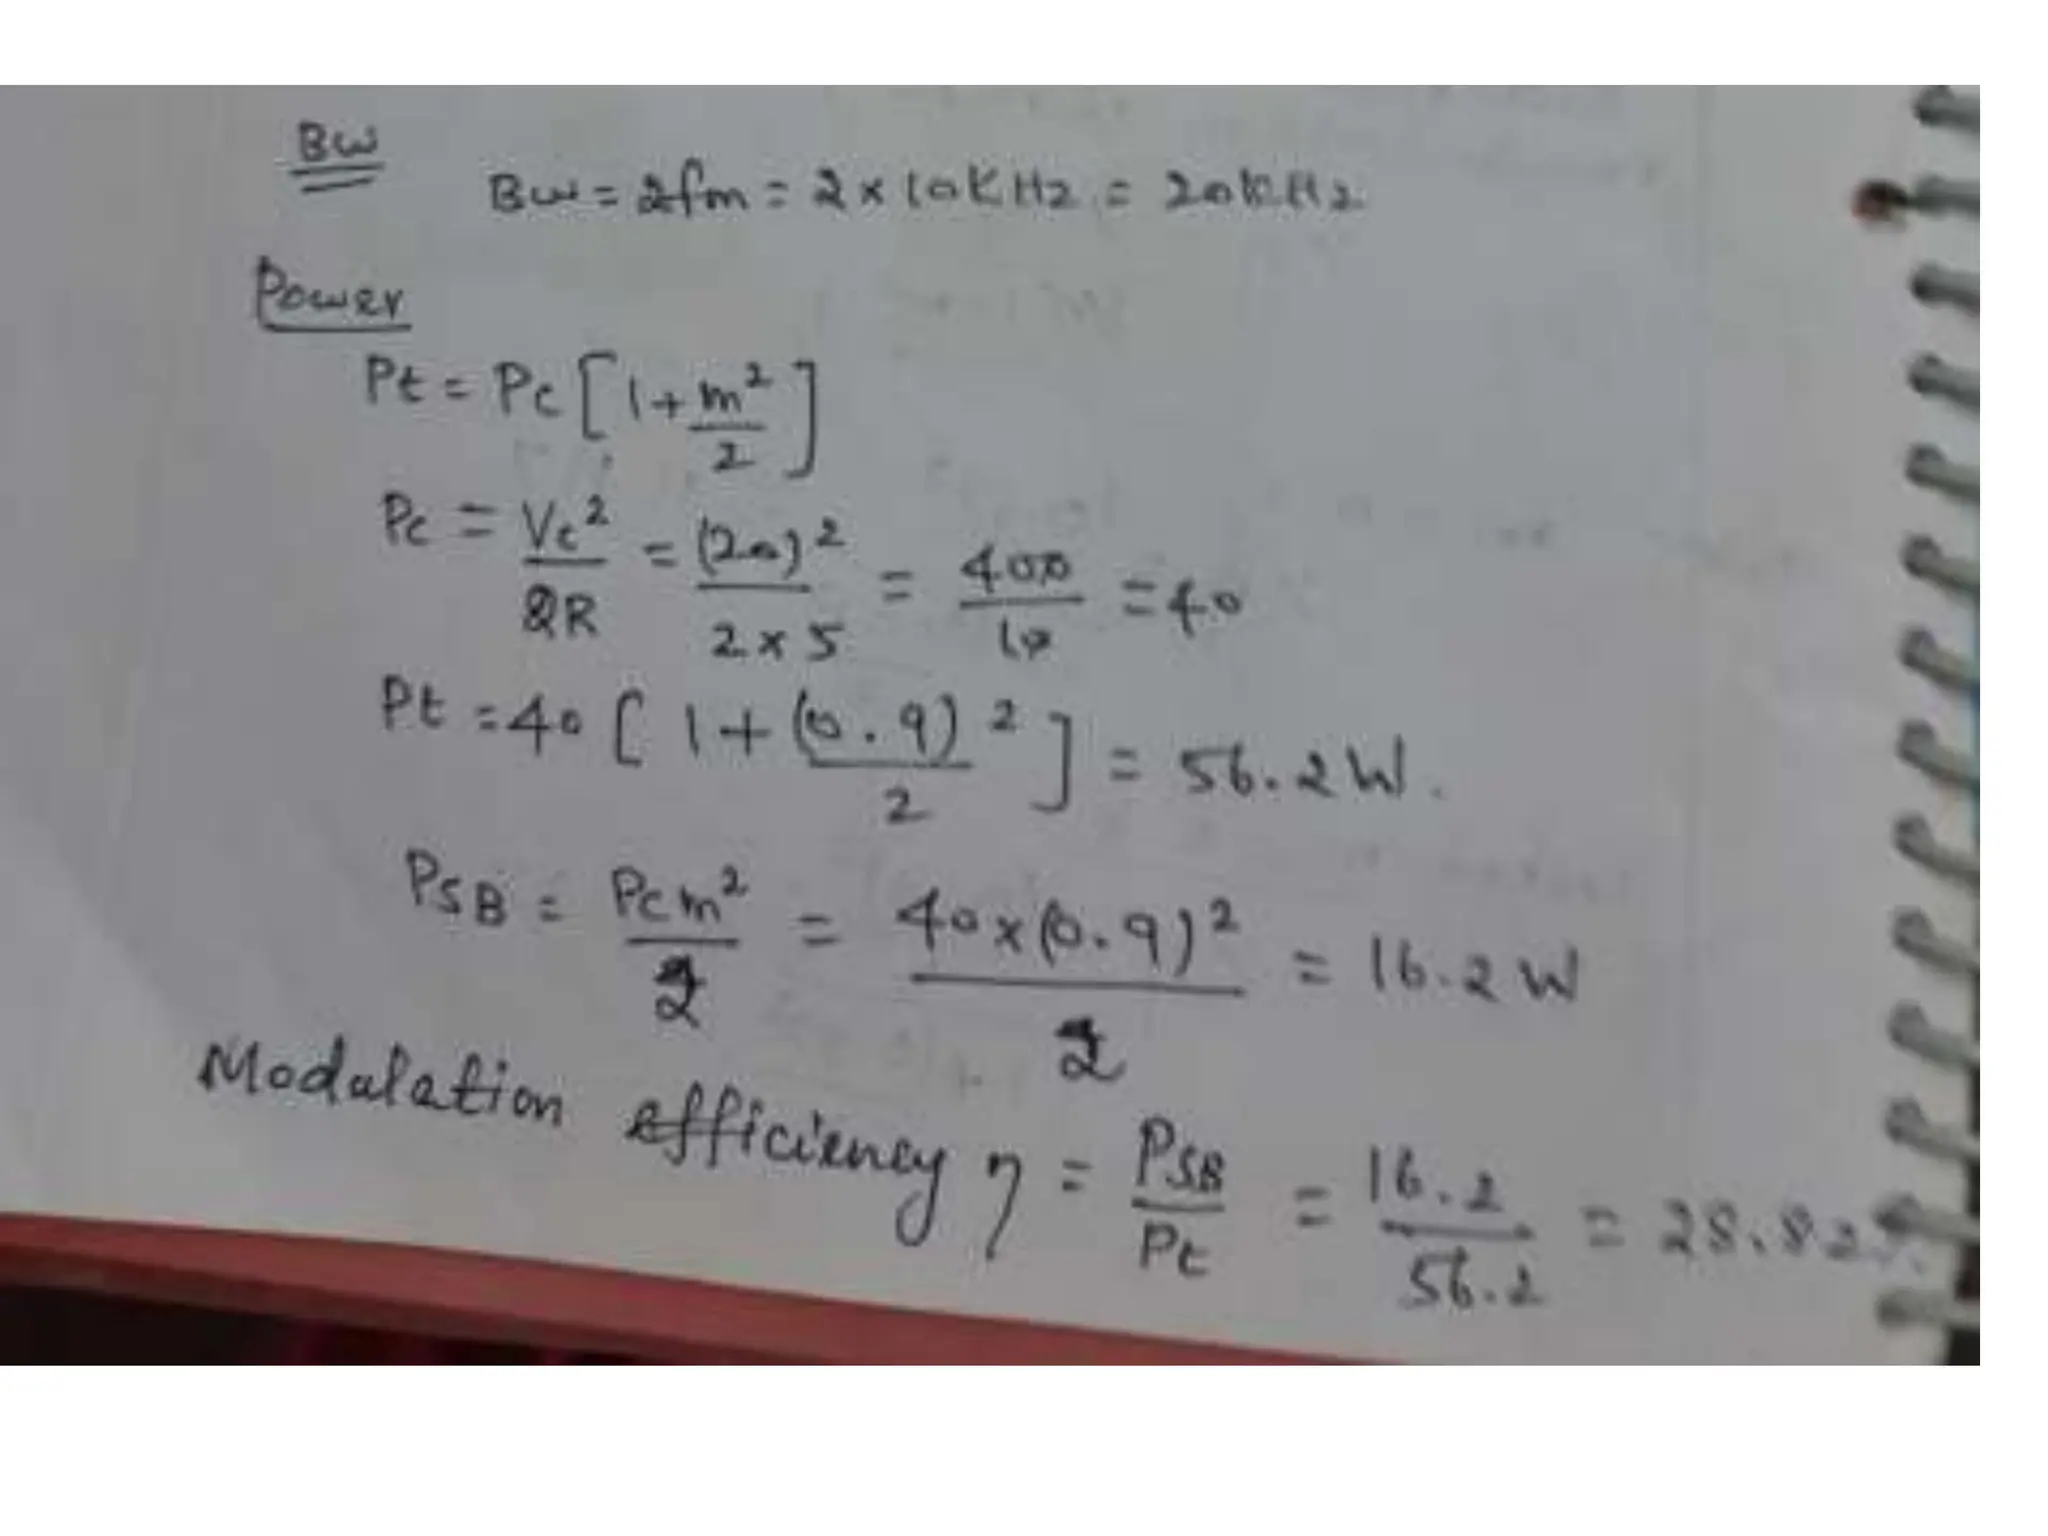 BW
BW = 2fm = 2 × 10KHz = 20KHz
Power
Pt = Pc [1 + m²/2]
Pc = Vc²/2R = (20)²/2×5 = 400/10 = 40
Pt = 40 [1 + (0.9)²/2] = 56.2W.
PSB = Pcm²/2 = 40×(0.9)²/2 = 16.2W
Modulation efficiency η = PSB/Pt = 16.2/56.2 = 28.82%